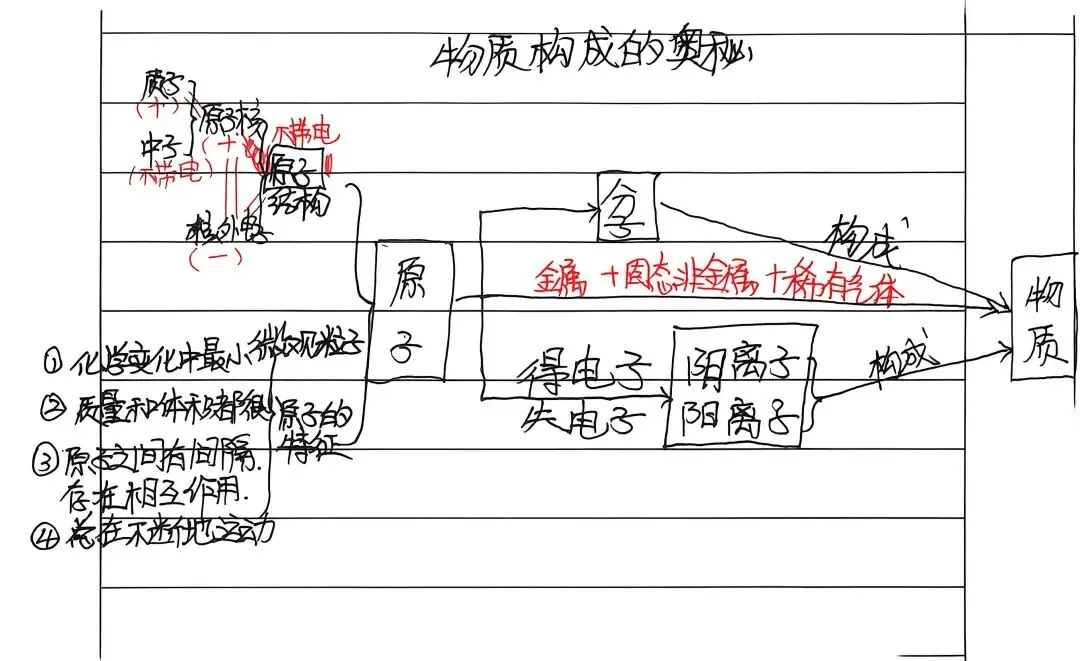 物质构成的奥秘
质子
(+)
原子核
(+)
中子
(不带电)
不带电
原子
结构
核外电子
(一)
分子
构成
金属+固态非金属+稀有气体
原子
物质
①化学变化中最小微观粒子
②质量和体积都很小
原子的
特征
③原子之间有间隔.
存在相互作用.
④总在不断地运动
得电子
失电子
阴离子
阳离子
构成